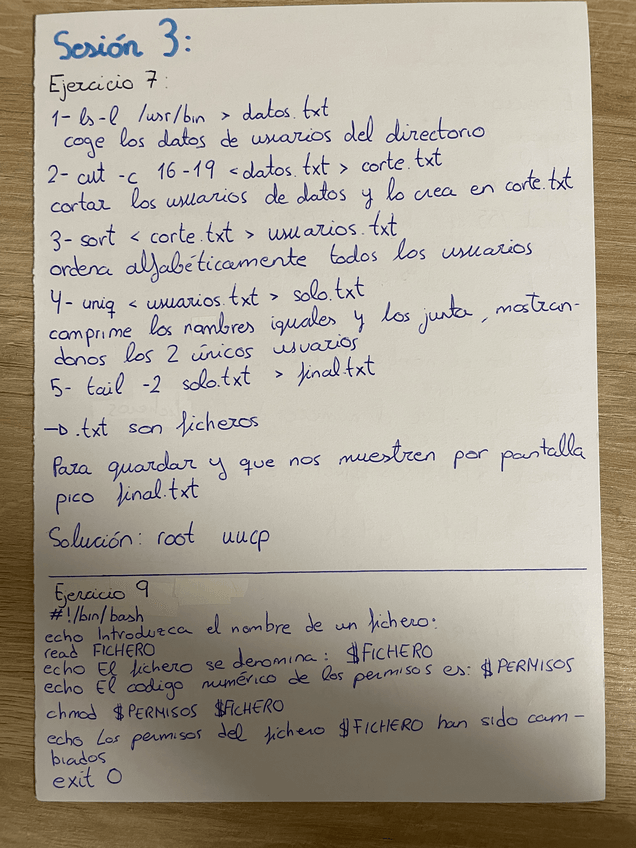 Sesión 3:
Ejercicio 7:
1- ls -l /usr/bin > datos.txt
coge los datos de usuarios del directorio
2- cut -c 16-19 <datos.txt > corte.txt
cortar los usuarios de datos y lo crea en corte.txt
3- sort < corte.txt > usuarios.txt
ordena alfabéticamente todos los usuarios
4- uniq < usuarios.txt > solo.txt
comprime los nombres iguales y los junta, mostran-
donos los 2 únicos usuarios
5- tail -2 solo.txt > final.txt
→ .txt son ficheros
Para guardar y que nos muestren por pantalla
pico final.txt
Solución: root uucp
Ejercicio 9
#!/bin/bash
echo Introduzca el nombre de un fichero:
read FICHERO
echo El fichero se denomina: $FICHERO
echo El codigo numérico de los permisos es: $PERMISOS
chmod $PERMISOS $FICHERO
echo Los permisos del fichero $FICHERO han sido cam-
biados
exit 0